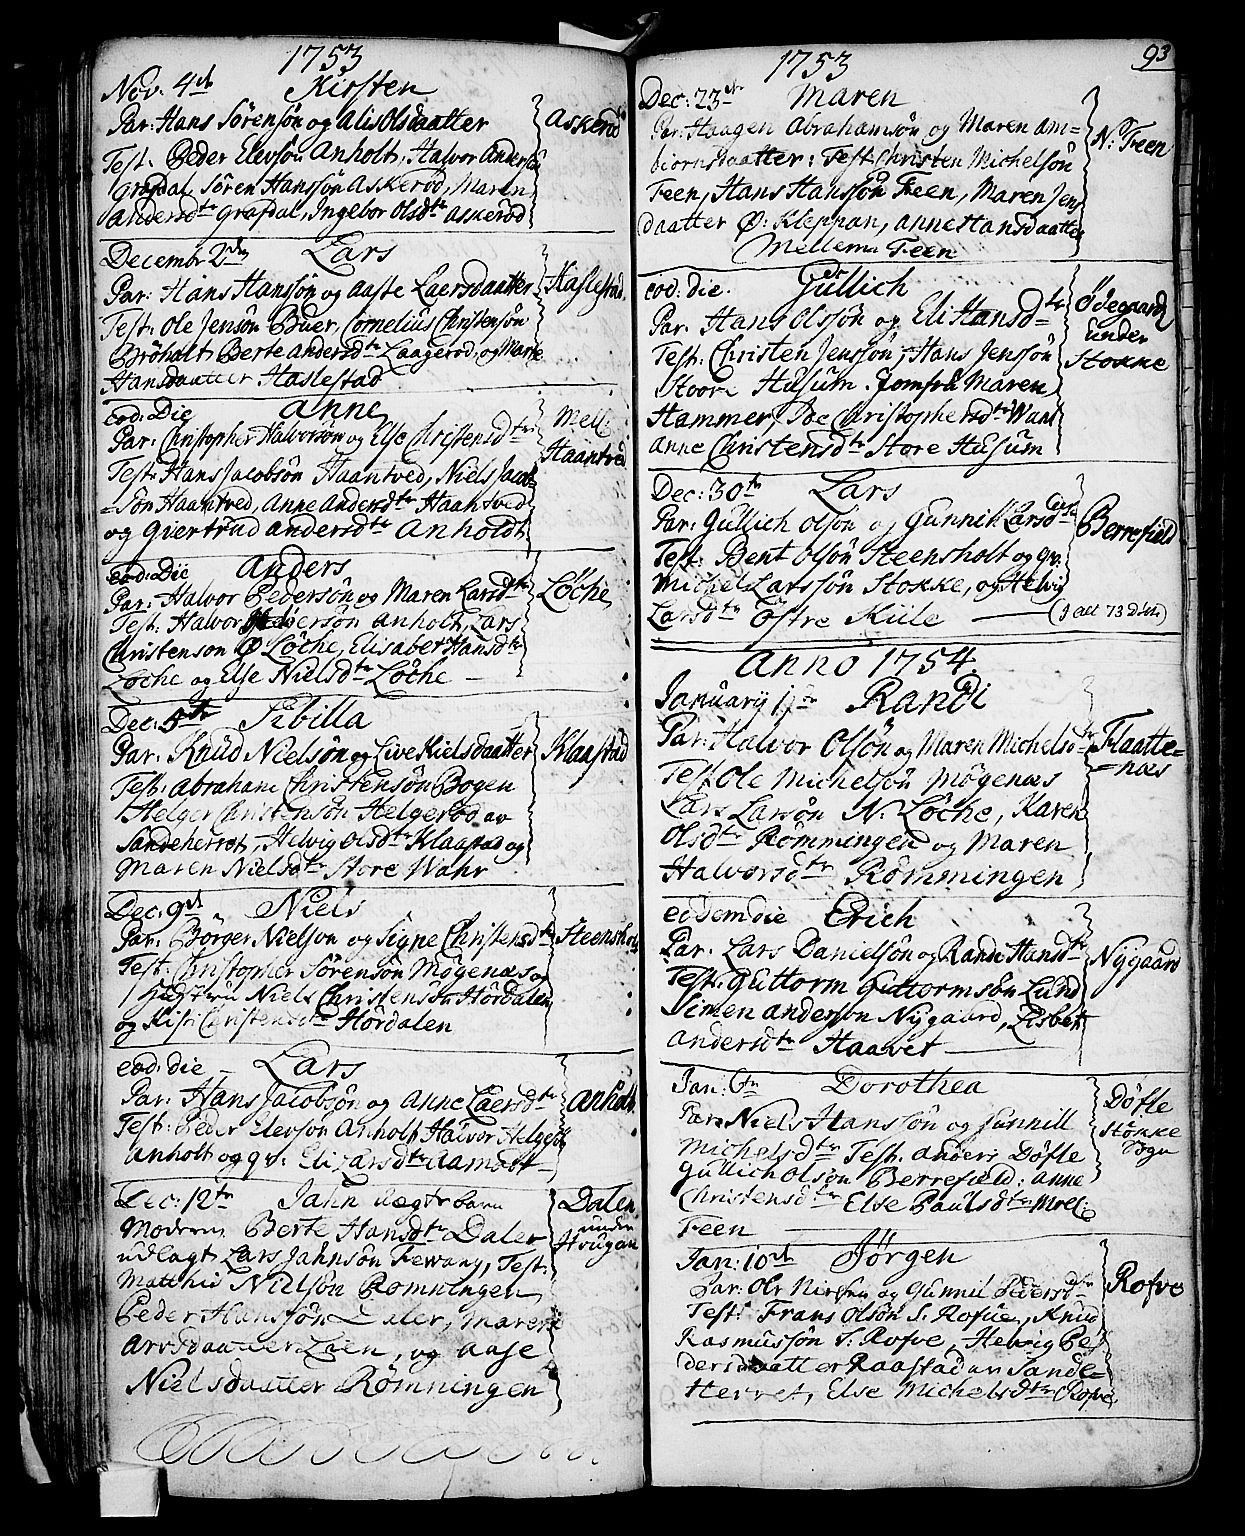 1753
Nov: 4de Kirsten
Par: Hans Sörensön og Alis Olsdaatter Askeröd
Test: Peder Elevsön Anholt, Halvor Andersön
Grafdal Sören Hanssön Askeröd, Maren
Andersdtr Grafdal, Ingebor Olsdtr Askeröd
Decembr 2den Lars
Par: Hans Hansön og Aaste Laersdaatter Haslestad
Test: Ole Jensön Buer, Cornelius Christensön
Bröholt, Berte Andersdtr Laageröd, og Marte
Hansdaatter Haslestad
eod: Die Anne
Par: Christopher Halvorsön og Else Christensdtr Mell: Haantved
Test: Hans Jacobsön Haantved, Niels Jacob-
=sön Haantved, Anne Andersdtr Haantved
og Giertrud Andersdtr Anholdt
eod: Die Anders
Par: Halvor Pedersön og Maren Larsdtr Löche
Test: Halvor Pedersön Anholt, Lars
Christenson Ø: Löche, Elisabet Hansdtr
Löche og Else Nielsdtr Löche
Dec: 5te Sibilla
Par: Knud Nielsön og Live Nielsdaatter Klaastad
Test: Abraham Christensön Bogen
Helge Christensön Helgeröd av
Sandeherret, Helvig Olsdtr Klaastad og
Maren Nielsdtr Store Wahr
Dec: 9de Niels
Par: Börger Nielson og Signe Christensdtr Steensholt
Test: Christopher Sörensön Mögenæs og
Hustru Niels Christensön Hördalen
og Kisti Christensdtr Hördalen
eod: die Lars
Par: Hans Jacobsön og Anne Laersdtr Anholt
Test: Peder Elevson Anholt, Halvor Helgesön
Anholt og qv: Eli Larsdtr Aamodt
Dec: 12te Jahn uægte barn Dalen
Moderen Berte Hansdtr Dalen under
udlagt Lars Jahnsön Fewang, Test: Haugan
Matthis Nielsön Romningen
Peder Hanssön Dalen, Maren
Arvsdaatter Laen, og Aase
Nielsdaatter Römningen
1753 93
Dec: 23de Maren
Par: Haagen Abrahamsön og Maren Am= N: Feen
biornsdaatter: Test: Christen Michelsön
Feen, Hans Hansön Feen, Maren Jens
daatter Ø: Kleppan, Anne Hansdaatter
Mellem Feen
eod: die. Gullich
Par: Hans Olssön og Eli Hansdtr Ødegaard
Test: Christen Jenssön, Hans Jenssön under
Store Husum. Jomfru Maren Stokke
Hammer, Boe Christophersdtr Wahl
Anne Christensdtr Store Husum
Dec: 30te Lars
Par: Gullich Olsön og Gunnil Larsdtr Berrefield
Test: Bent Olsön Steensholt og qv:
Michel Larssön Stokke, og Helvig
Larsdtr Östre Kiile (J alt 73 Döbte)
Anno 1754
Januarij 1te Randi
Par: Halvor Olsön og Maren Michelsdtr Flaatte=
Test Ole Michelsön Mögenæs =næs
Lars Larsön N: Löche, Karen
Olsdtr Römmingen og Maren
Halvorsdtr Römmingen
eodem die Erich
Par: Lars Danielsön og Rande Hansdtr Nygaard
Test: Guttorm Guttormsön Lund
Simen Andersön Nygaard, Lisbet
Andersdtr Haavet
Jan: 6te Dorothea
Par: Niels Hanssön og Gunnill Döfle
Michelsdtr Test: Anders Döfle Stökke
Gullich Olsön Berrefield: Anne Sogn
Christensdtr Else Paulsdtr Mell:
Feen
Jan: 10de Jørgen
Par: Ole Nielsen og Gunnil Pedersdtr Rofve
Test: Frans Olsön S. Rofve, Knud
Rasmussön S: Rofve, Helvig Pe-
dersdaatter Raastad av Sande=
Herret, Else Michelsdtr Rofve